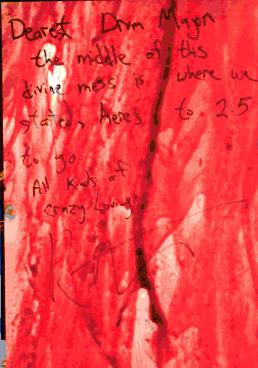 Dearest Drum Major
the middle of this
divine mess is where we
started, here's to 25
to go
All kinds of
crazy Loving